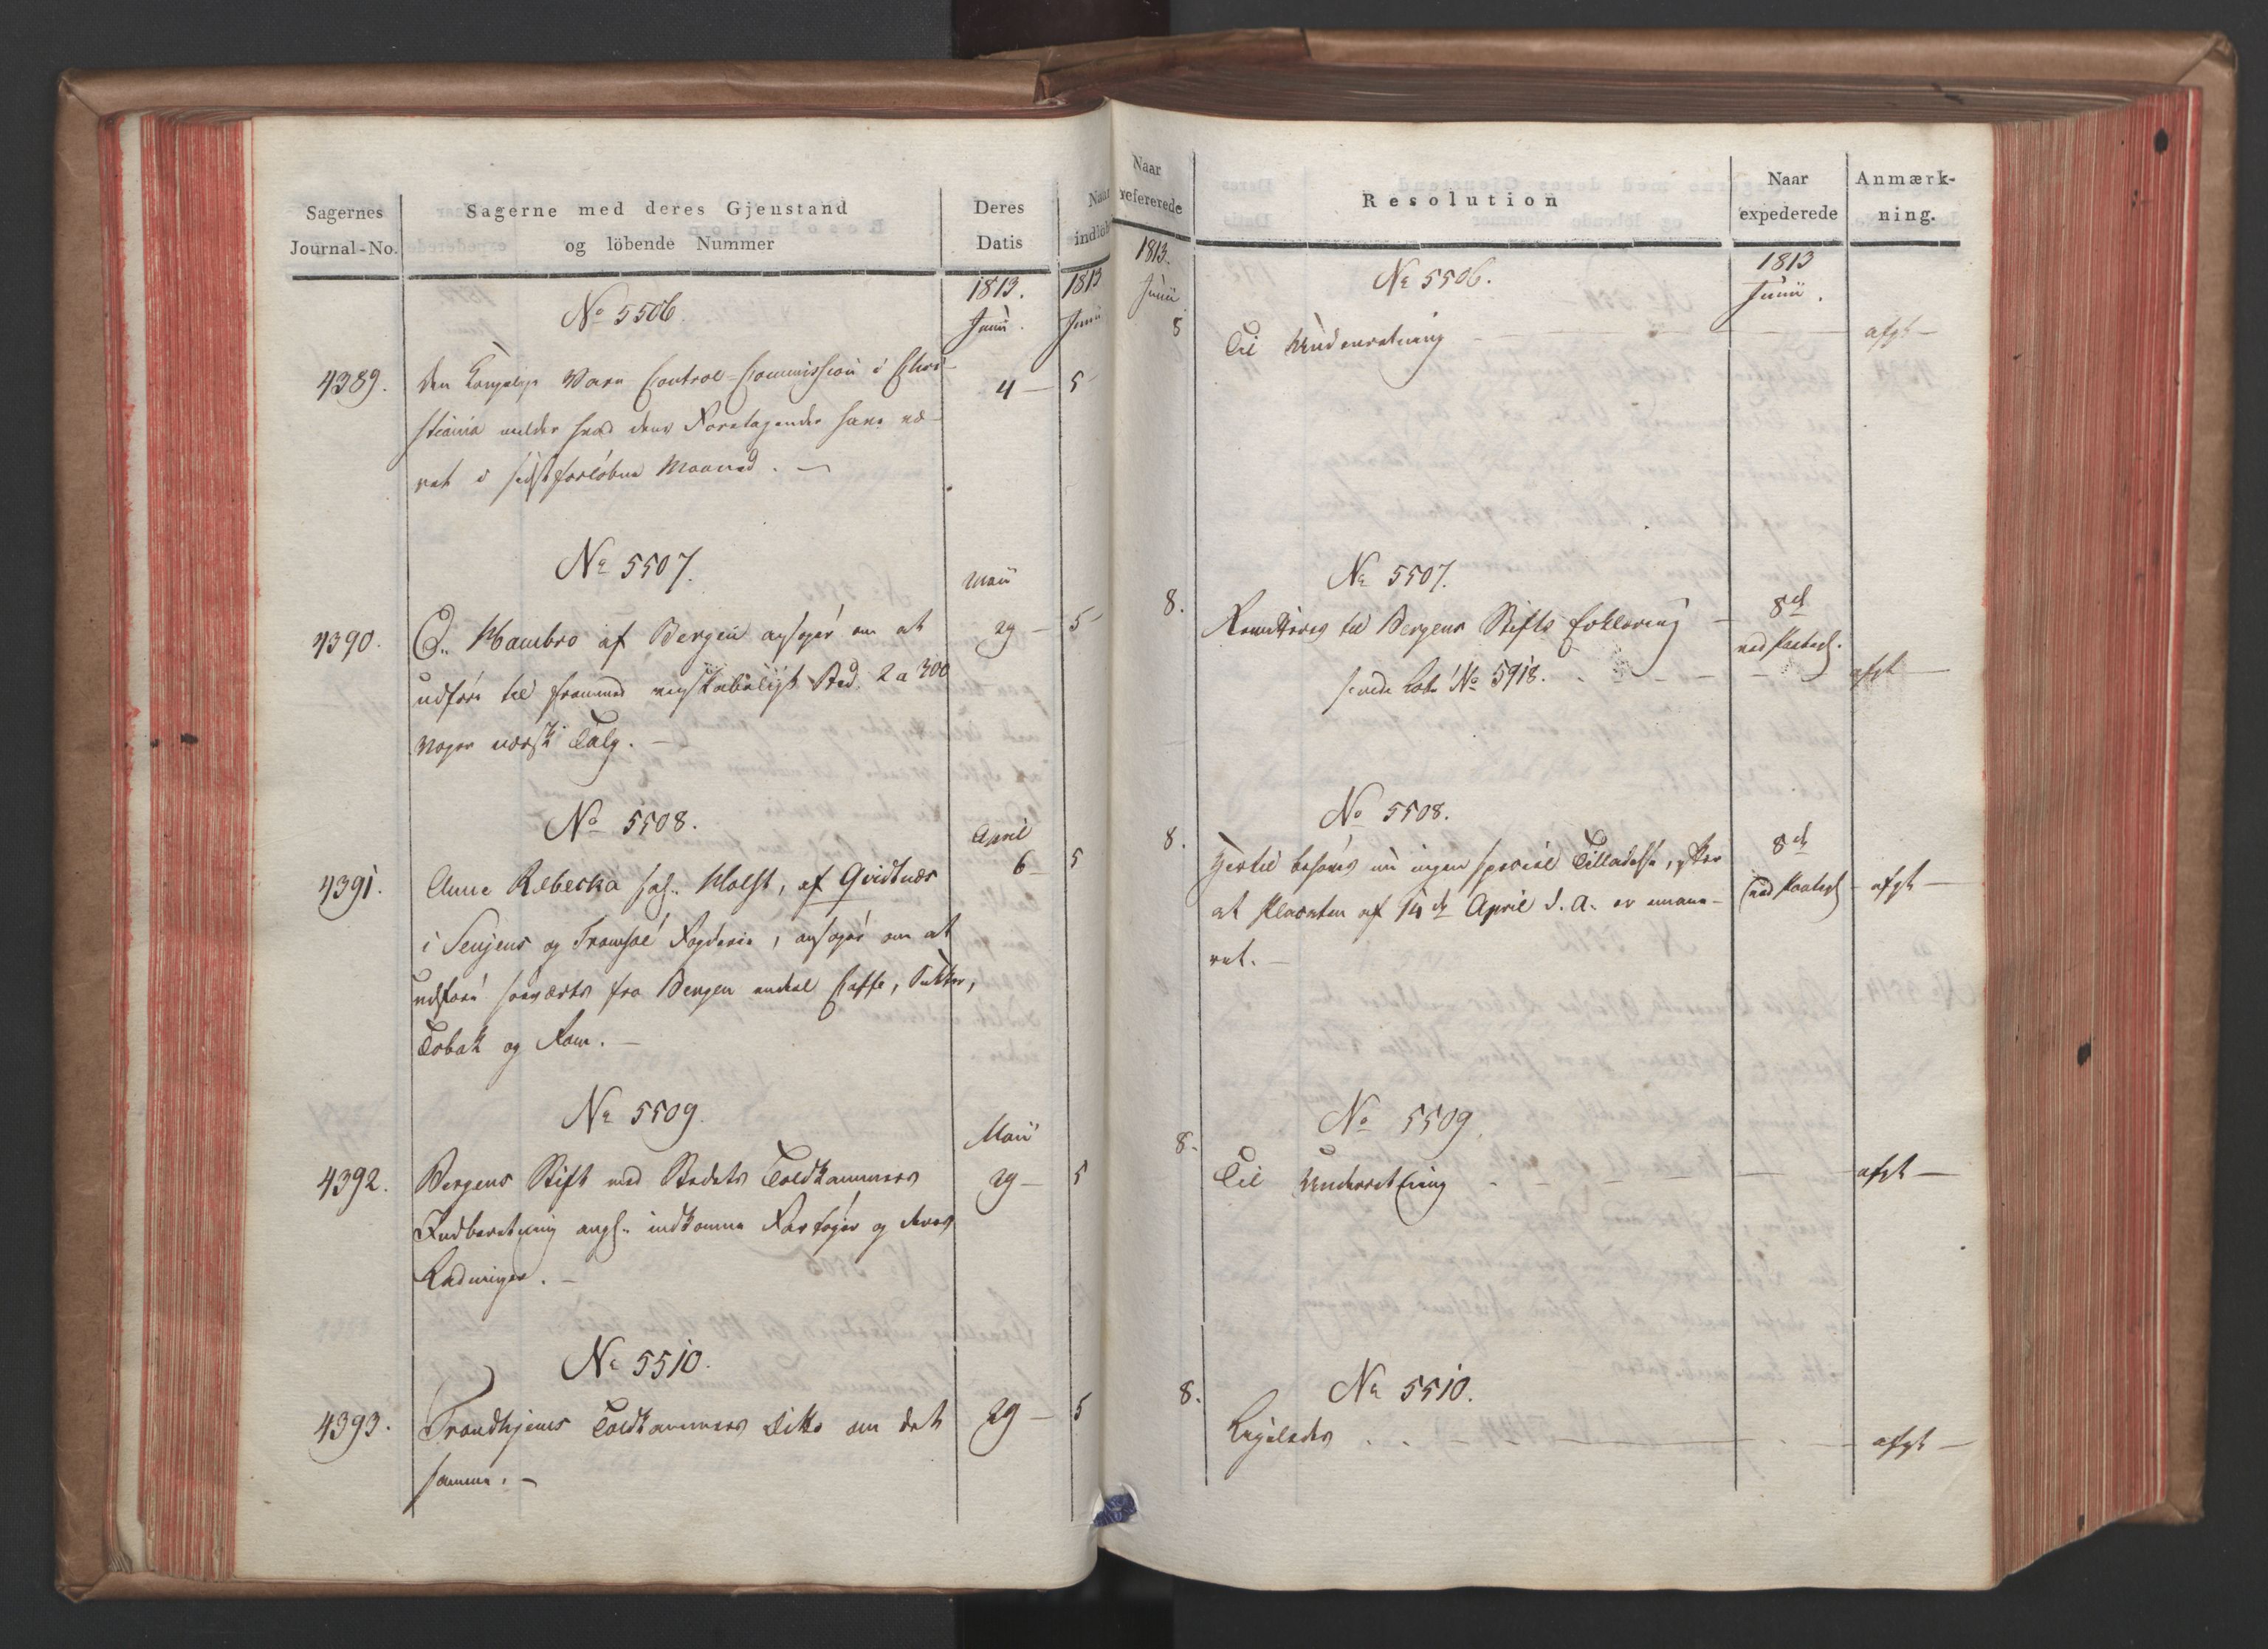 Sagernes
Journal-No.
Sagerne med deres Gjenstand
og löbende Nummer
Deres
Datis
Naar
indlöb
1813.
Junii.
1813
Junii
No 5506.
4389.
Den Kongelige Vare Control-Commission i Chri-
4 —
5
stiania melder hvad dens Foretagender have væ-
ret i sidstforløbne Maaned. —
No 5507.
Maii
4390.
C. Hambro af Bergen ansøger om at
29 —
5
udføre til fremmed Sted 2 a 300
Voger norsk Talg. —
No 5508.
April
4391.
Anne Rebecka sal. Holst, af Qvidtnæs
6 —
5
i Senjens og Tromsøe Fogderie, ansøger om at
udføre søeværts fra Bergen endeel Caffe, Sukker,
Tobak og Rom. —
No 5509.
Maii
4392.
Bergens Stift med Stedets Toldkammers
29 —
5
Indberetning angl. indkomne Fartøyer og deres
Ladninger. —
No 5510.
4393.
Trondhjems Toldkammers Ditto om det
29 —
5
samme. —
Naar
refererede
Resolution
Naar
expederede
Anmærk-
ning.
1813.
Junii
1813
Junii.
No 5506.
8
Til Underretning
afgt —
No 5507.
8.
Remitteres til Bergens Stifts Erklæring —
8de
ved Paategn.
Lobe No 5918.
afgt —
No 5508.
8.
Hertil behøves nu ingen speciel Tilladelse, efter
8de
ved Paategn
afgt —
at Placaten af 14de April d. A. er emane-
ret. —
No 5509.
8.
Til Underretning
afgt —
No 5510.
8.
Ligeledes
afgt —